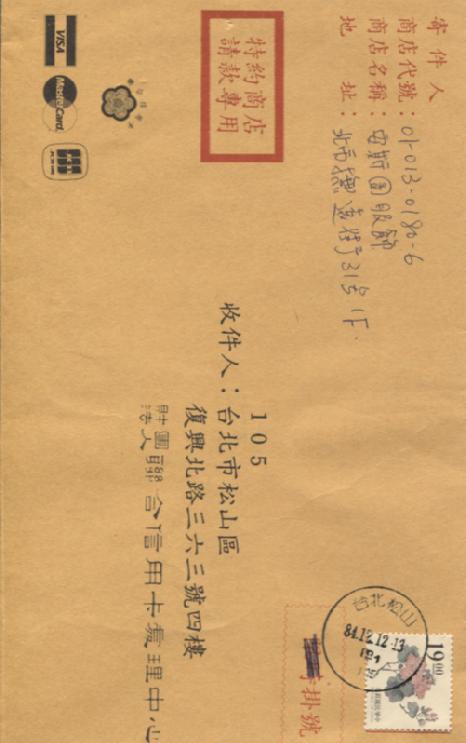 寄件人
商店代號：01-013-0180-6
商店名稱：安斯國服飾
地　　址：北市撫遠街315 1F.
特約商店
請款專用
VISA
MasterCard
105
收件人：台北市松山區
復興北路三六三號四樓
財團法人聯合信用卡處理中心
台北松山
84.12.12-13
19 00
掛號